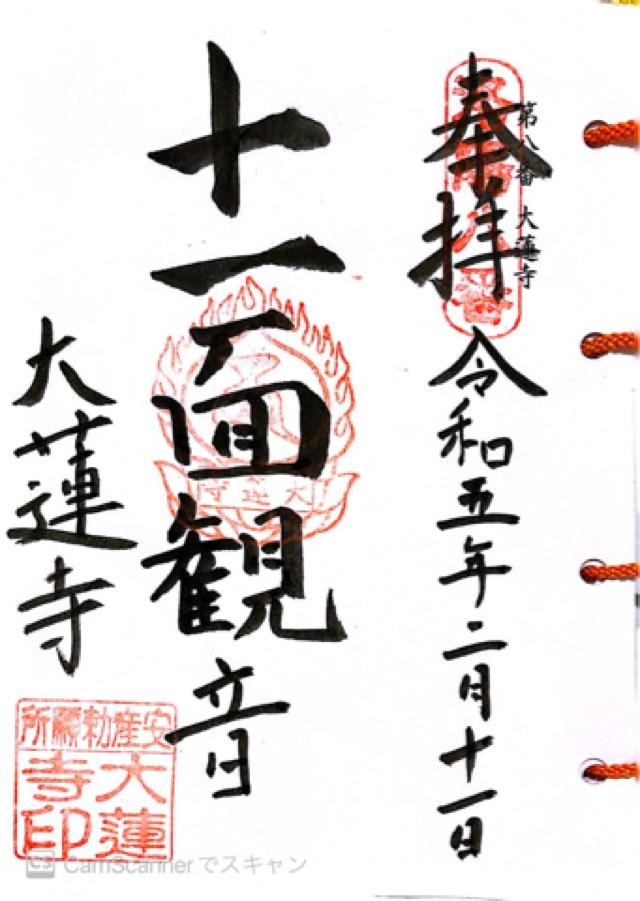 第八番 大蓮寺
奉拝
令和五年二月十一日
十一面観音
大蓮寺
大蓮寺
安産勅願所
大蓮
寺印
CS CamScannerでスキャン